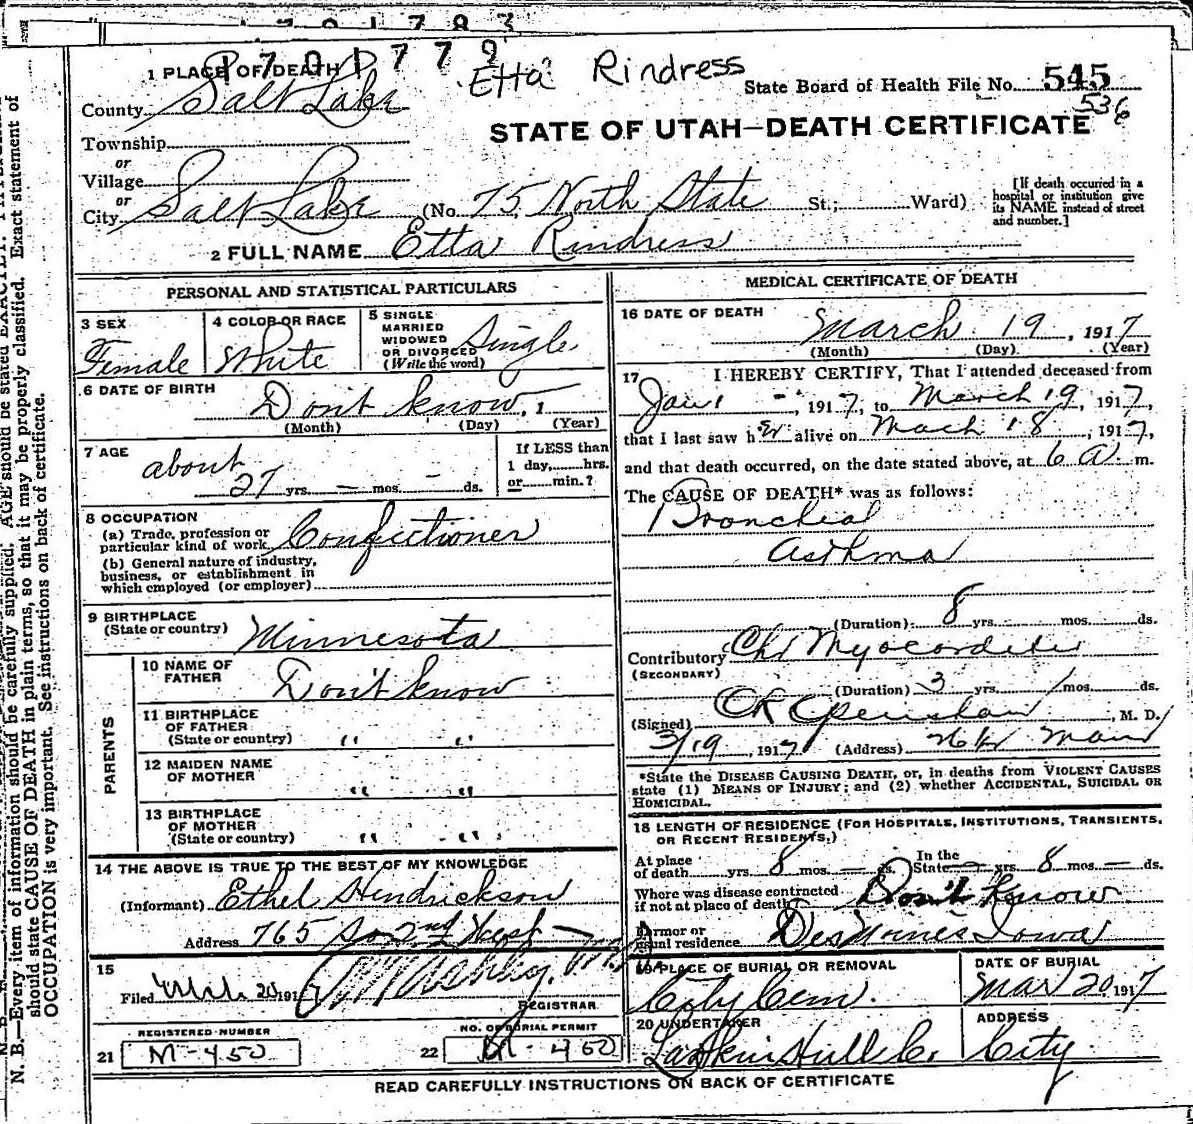 1 7 0 1 7 8 3
1 7 0 1 7 7 9
Etta Rindress
1 PLACE OF DEATH
State Board of Health File No. 545
536
County Salt Lake
STATE OF UTAH—DEATH CERTIFICATE
Township
or
Village
or
City Salt Lake (No. 75 North State St.; Ward)
[If death occurred in a hospital or institution give its NAME instead of street and number.]
2 FULL NAME Etta Rindress
PERSONAL AND STATISTICAL PARTICULARS
3 SEX Female
4 COLOR OR RACE White
5 SINGLE MARRIED WIDOWED OR DIVORCED (Write the word) Single
6 DATE OF BIRTH
Don't know, 1
(Month) (Day) (Year)
7 AGE
about 27 yrs. — mos. — ds.
If LESS than 1 day, hrs. or min.?
8 OCCUPATION
(a) Trade, profession or particular kind of work Confectioner
(b) General nature of industry, business, or establishment in which employed (or employer)
9 BIRTHPLACE
(State or country) Minnesota
PARENTS
10 NAME OF FATHER Don't know
11 BIRTHPLACE OF FATHER (State or country) " "
12 MAIDEN NAME OF MOTHER " "
13 BIRTHPLACE OF MOTHER (State or country) " "
14 THE ABOVE IS TRUE TO THE BEST OF MY KNOWLEDGE
(Informant) Ethel Hendrickson
Address 765 So 2nd West
15
Filed Mch 20 1917
REGISTRAR
REGISTERED NUMBER
21 M-450
NO. OF BURIAL PERMIT
22 M-450
MEDICAL CERTIFICATE OF DEATH
16 DATE OF DEATH
March 19, 1917
(Month) (Day) (Year)
17 I HEREBY CERTIFY, That I attended deceased from
Jan 1 -, 1917, to March 19, 1917,
that I last saw her alive on Mach 18, 1917,
and that death occurred, on the date stated above, at 6 A. m.
The CAUSE OF DEATH* was as follows:
Bronchial
asthma
(Duration) 8 yrs. mos. ds.
Contributory Chr Myocarditis
(SECONDARY)
(Duration) 3 yrs. 1 mos. ds.
(Signed) CR Openshaw, M. D.
3/19, 1917 (Address) Main
*State the DISEASE CAUSING DEATH, or, in deaths from VIOLENT CAUSES
state (1) MEANS OF INJURY; and (2) whether ACCIDENTAL, SUICIDAL OR
HOMICIDAL.
18 LENGTH OF RESIDENCE (FOR HOSPITALS, INSTITUTIONS, TRANSIENTS,
OR RECENT RESIDENTS.)
At place of death yrs. 8 mos. — ds. In the State — yrs. 8 mos. — ds.
Where was disease contracted if not at place of death Don't Know
Former or usual residence Des Moines Iowa
19 PLACE OF BURIAL OR REMOVAL
City Cem.
DATE OF BURIAL
Mar 20, 1917
20 UNDERTAKER
Larkin Hull Co.
ADDRESS
City
READ CAREFULLY INSTRUCTIONS ON BACK OF CERTIFICATE
N. B.—Every item of information should be carefully supplied. AGE should be stated EXACTLY.
should state CAUSE OF DEATH in plain terms, so that it may be properly classified. Exact statement of
OCCUPATION is very important. See instructions on back of certificate.